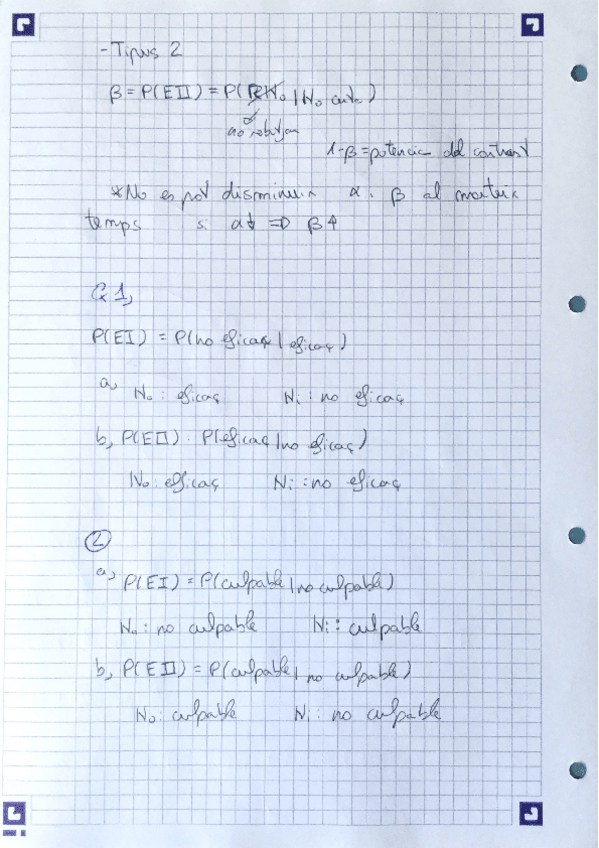 - Tipus 2
β = P(EII) = P(RH₀ | H₀ certa)
no rebutjar
1-β = potencia del contrast
*No es pot disminuir α i β al mateix
temps si α↓ ⇒ β↑
Ex 1,
P(EI) = P(no eficaç | eficaç)
a, H₀: eficaç H₁: no eficaç
b, P(EII): P(eficaç | no eficaç)
H₀: eficaç H₁: no eficaç
②
a, P(EI) = P(culpable | no culpable)
H₀: no culpable H₁: culpable
b, P(EII) = P(culpable | no culpable)
H₀: culpable H₁: no culpable